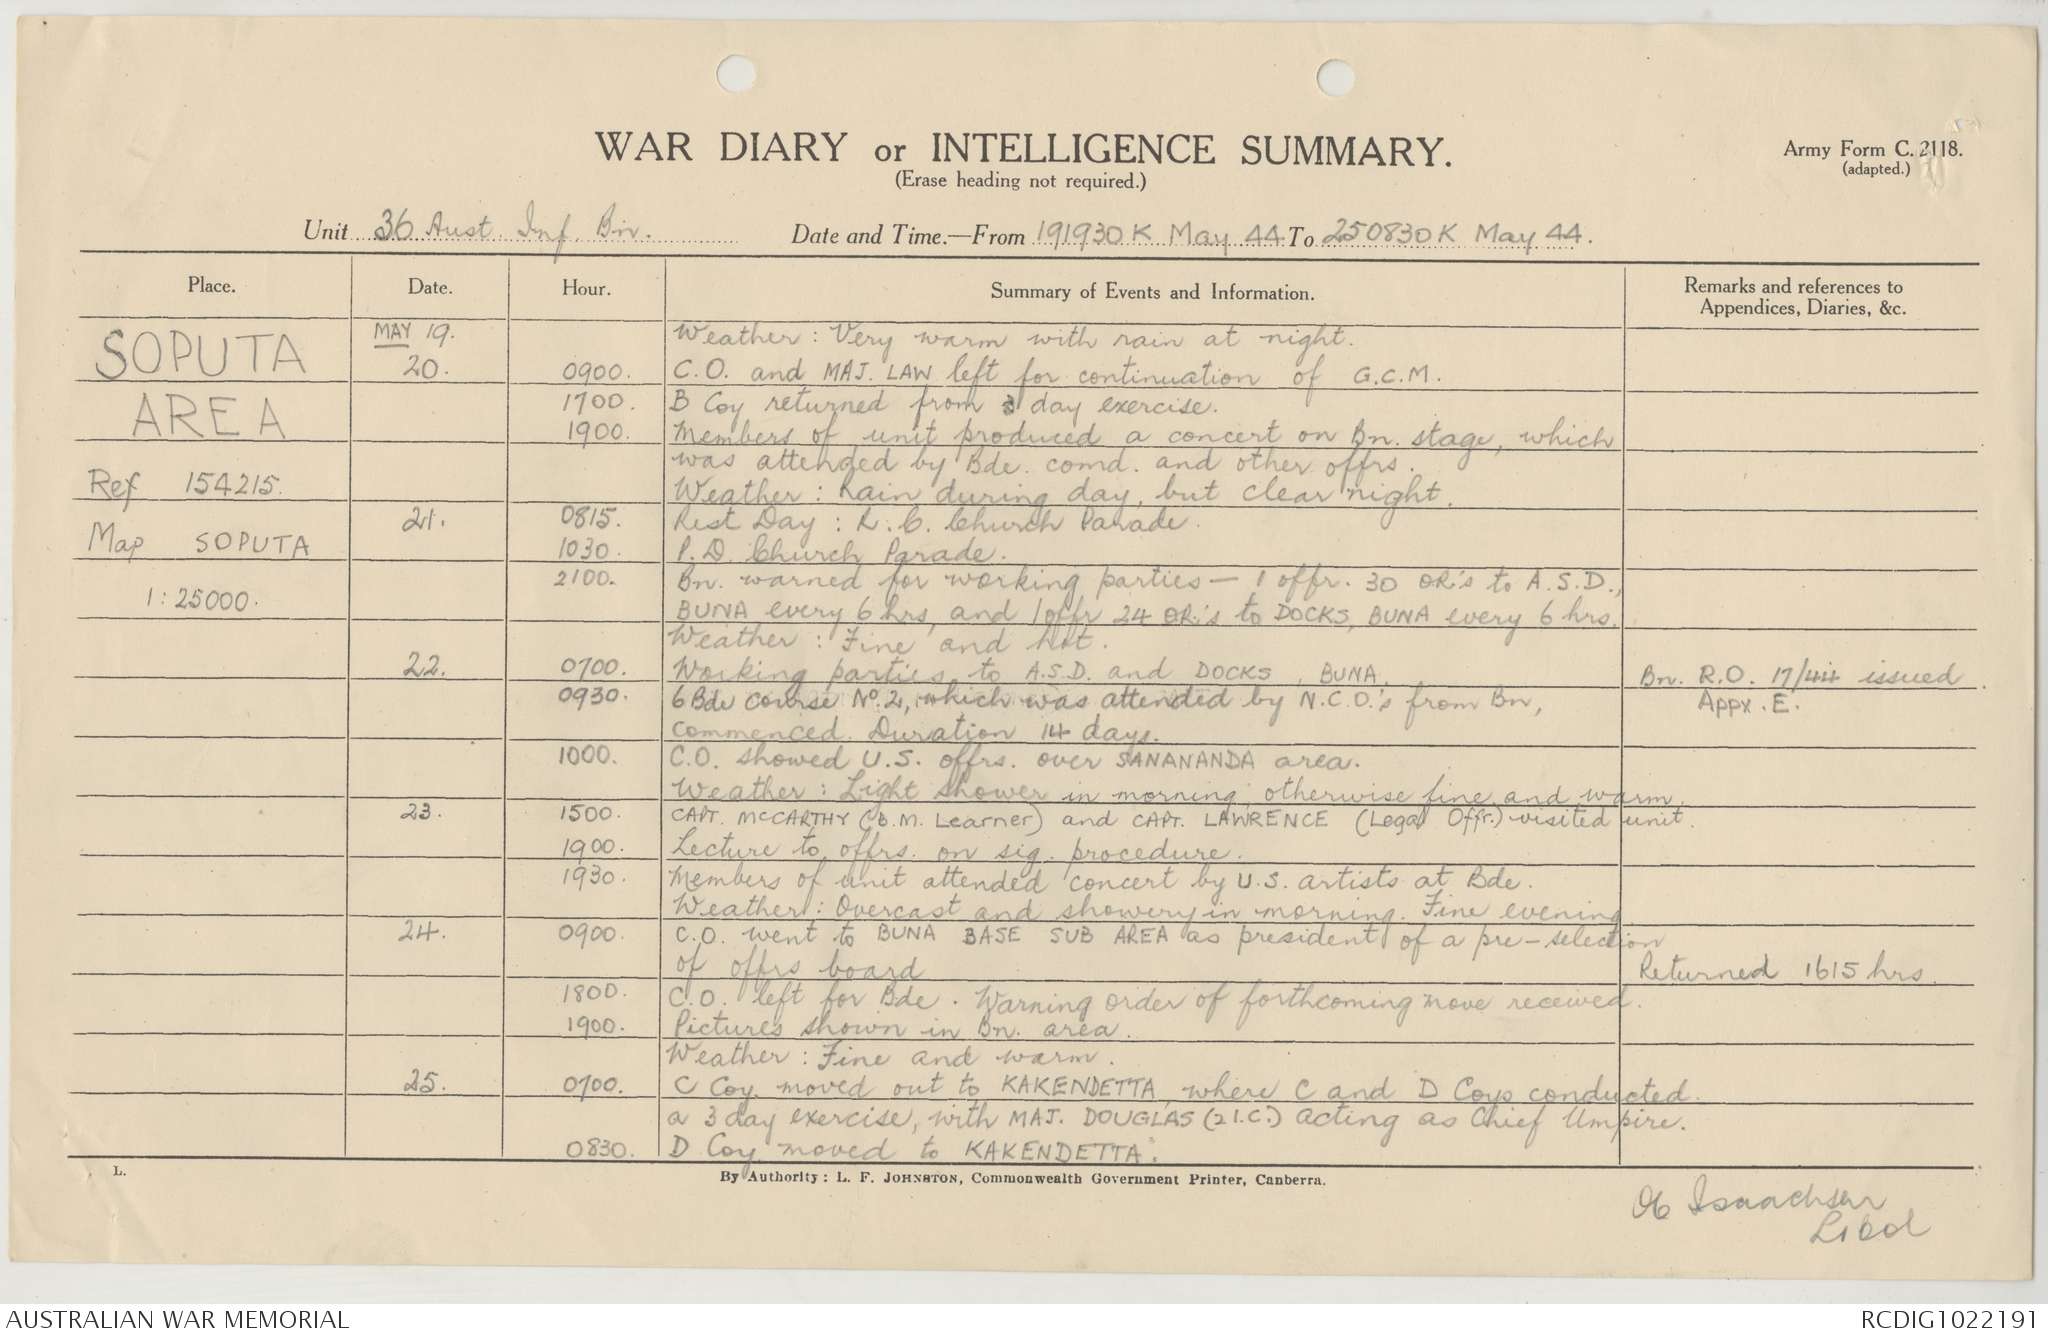 WAR DIARY or INTELLIGENCE SUMMARY.
(Erase heading not required.)
Army Form C. 2118.
(adapted.)
Unit 36 Aust. Inf. Bn. Date and Time.—From 191930K May 44 To 250830K May 44.
Place. Date. Hour. Summary of Events and Information. Remarks and references to Appendices, Diaries, &c.
SOPUTA MAY 19. Weather: Very warm with rain at night.
20. 0900. C.O. and MAJ. LAW left for continuation of G.C.M.
AREA 1700. B Coy returned from 3 day exercise.
1900. Members of unit produced a concert on Bn. stage, which
was attended by Bde. comd. and other offrs.
Ref 154215. Weather: Rain during day, but clear night.
21. 0815. Rest Day: R.C. Church Parade.
Map SOPUTA 1030. P.D. Church Parade.
2100. Bn. warned for working parties — 1 offr. 30 OR's to A.S.D.,
1:25000. BUNA every 6 hrs, and 1 offr 24 OR's to DOCKS, BUNA every 6 hrs.
Weather: Fine and hot.
22. 0700. Working parties to A.S.D. and DOCKS, BUNA. Bn. R.O. 17/44 issued.
0930. 6 Bde course No. 2, which was attended by N.C.O.'s from Bn, Appx. E.
commenced. Duration 14 days.
1000. C.O. showed U.S. offrs. over SANANANDA area.
Weather: Light shower in morning, otherwise fine and warm.
23. 1500. CAPT. McCARTHY (B.M. Learner) and CAPT. LAWRENCE (Legal Offr.) visited unit.
1900. Lecture to offrs. on sig. procedure.
1930. Members of unit attended concert by U.S. artists at Bde.
Weather: Overcast and showery in morning. Fine evening.
24. 0900. C.O. went to BUNA BASE SUB AREA as president of a pre-selection
of offrs board Returned 1615 hrs.
1800. C.O. left for Bde. Warning order of forthcoming move received.
1900. Pictures shown in Bn. area.
Weather: Fine and warm.
25. 0700. C Coy. moved out to KAKENDETTA, where C and D Coys conducted
a 3 day exercise, with MAJ. DOUGLAS (2 I.C.) acting as Chief Umpire.
0830. D Coy moved to KAKENDETTA.
L.
By Authority: L. F. JOHNSTON, Commonwealth Government Printer, Canberra.
Isaachsen
Lt Col
AUSTRALIAN WAR MEMORIAL
RCDIG1022191